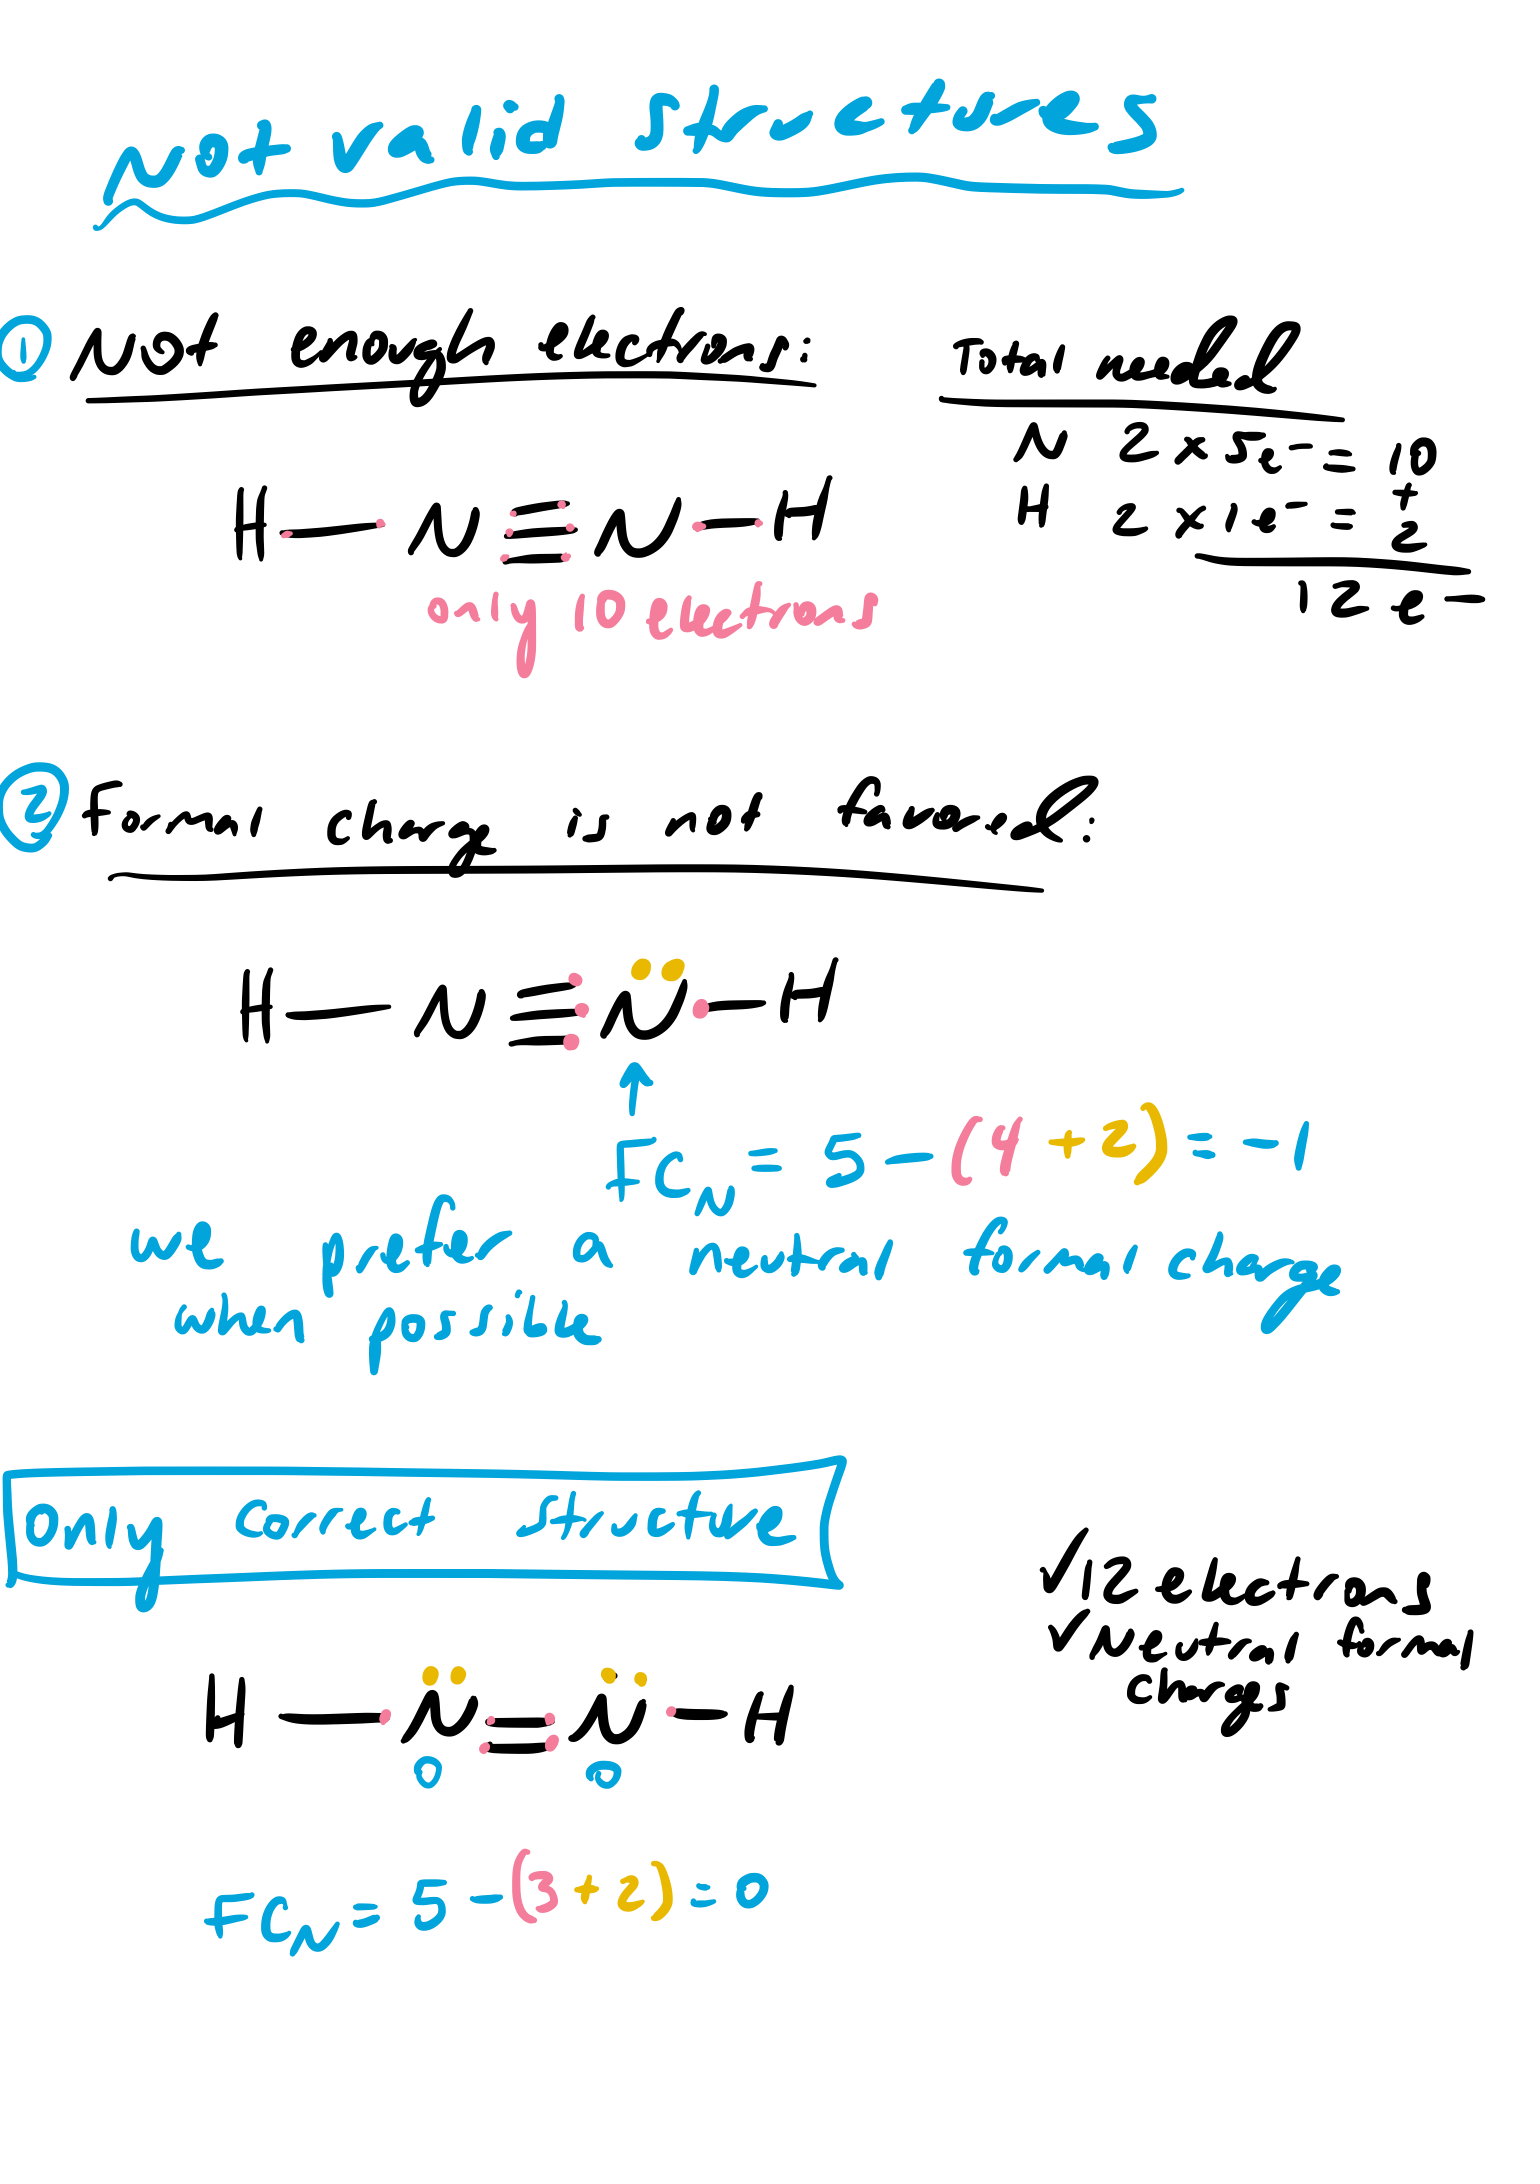 Not valid structures
① Not enough electrons:
Total needed
N 2 x 5e⁻ = 10
+
H 2 x 1e⁻ = 2
12 e⁻
H — N ≡ N — H
only 10 electrons
② Formal charge is not favored:
H — N ≡ N̈ — H
↑
FC_N = 5 - (4 + 2) = -1
we prefer a neutral formal charge
when possible
Only correct structure
✓12 electrons
✓Neutral formal
charges
H — N̈ = N̈ — H
0 0
FC_N = 5 - (3 + 2) = 0